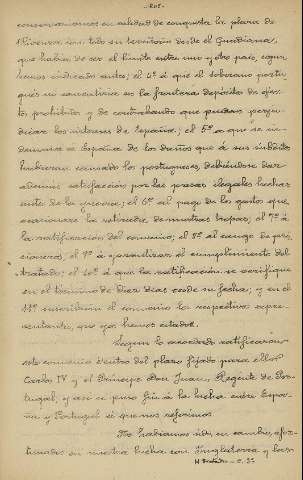 - 205 -
conservaríamos en calidad de conquista la plaza de
Olivenza con todo su territorio desde el Guadiana,
que había de ser el límite entre uno y otro país, según
hemos indicado antes; el 4º á que el soberano portu-
gués no consentiría en la frontera depósito de efec-
tos prohibidos y de contrabando que puedan perju-
dicar los intereses de España; el 5º á que se in-
demnice á España de los daños que á sus súbditos
hubieran causado los portugueses, debiéndose dar
además satisfacción por las presas ilegales hechas
antes de la guerra; el 6º al pago de los gastos que
ocasionare la retirada de nuestras tropas; el 7º á
la ratificación del convenio; el 8º al cange de pri-
sioneros; el 9º á garantizar el cumplimiento del
tratado; el 10º á que la ratificación se verifique
en el término de diez días desde su fecha; y en el
11º suscribían el convenio los respectivos repre-
sentantes, que ya hemos citado.
Según lo acordado ratificaron
este convenio dentro del plazo fijado para ello
Carlos IV y el Príncipe Don Juan, Regente de Por-
tugal, y así se puso fin á la lucha entre Espa-
ña y Portugal á que nos referimos.
No habíamos sido, en cambio, afor-
tunados en nuestra lucha con Inglaterra y las